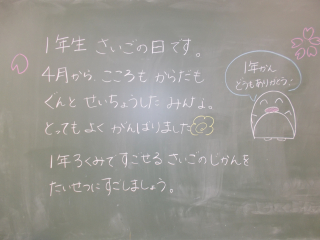 1年生 さいごの日です。
4月から こころも からだも
ぐんと せいちょうした みんな。
とっても よく がんばりました
1年3くみで すごせる さいごの じかんを
たいせつに すごしましょう。
1年かん
どうもありがとう